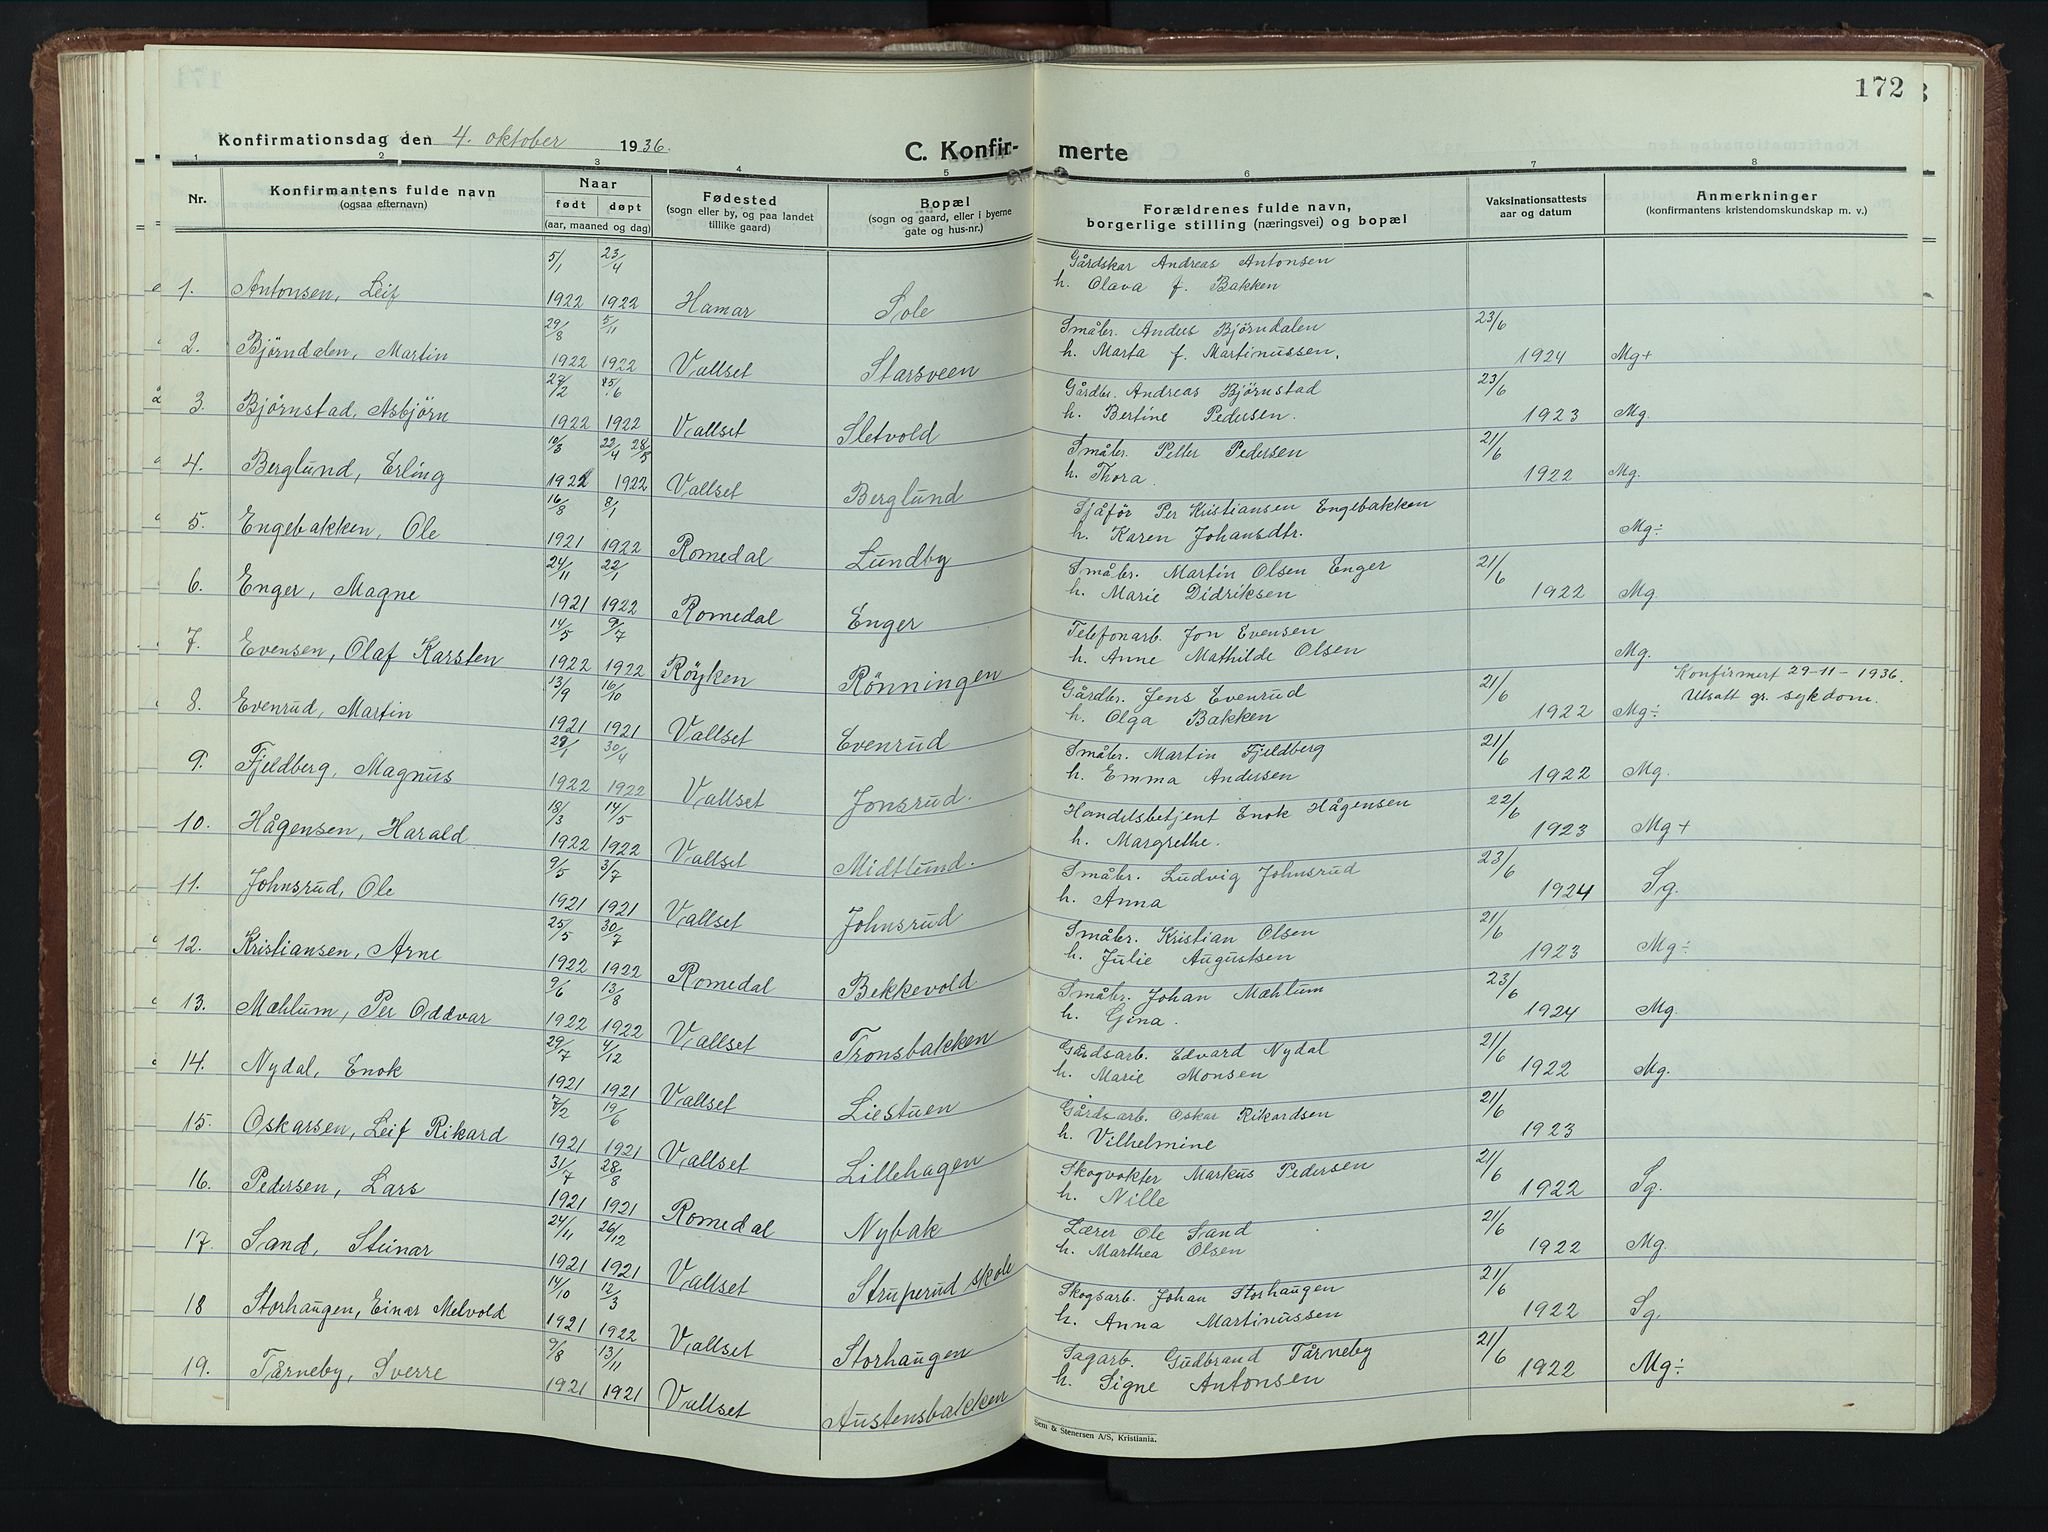 172
Konfirmationsdag den 4. oktober 1936.
C. Konfir- merte
1 2 3 4 5 6 7 8
Nr. | Konfirmantens fulde navn (ogsaa efternavn) | Naar født døpt (aar, maaned og dag) | Fødested (sogn eller by, og paa landet tillike gaard) | Bopæl (sogn og gaard, eller i byerne gate og hus-nr.) | Forældrenes fulde navn, borgerlige stilling (næringsvei) og bopæl | Vaksinationsattests aar og datum | Anmerkninger (konfirmantens kristendomskundskap m. v.)
1. Antonsen, Leif 5/1 1922 23/4 1922 Hamar Sole Gårdskar Andreas Antonsen h. Olava f. Bakken
2. Bjørndalen, Martin 29/8 1922 5/11 1922 Vallset Starsveen Småbr. Anders Bjørndalen h. Marta f. Martinussen. 23/6 1924 Mg+
3. Bjørnstad, Asbjørn 27/2 1922 25/6 1922 Vallset Sletvold Gårdbr. Andreas Bjørnstad h. Bertine Pedersen. 23/6 1923 Mg.
4. Berglund, Erling 10/3 1922 22/4 28/5 1922 Vallset Berglund Småbr. Petter Pedersen h. Thora. 21/6 1922 Mg.
5. Engebakken, Ole 16/8 1921 8/1 1922 Romedal Lundby Sjåfør Per Kristiansen Engebakken h. Karen Johansdtr. Mg÷
6. Enger, Magne 24/11 1921 22/1 1922 Romedal Enger Småbr. Martin Olsen Enger h. Marie Didriksen 21/6 1922 Mg.
7. Evensen, Olaf Karsten 14/5 1922 9/7 1922 Røyken Rønningen Telefonarb. Jon Evensen h. Anne Mathilde Olsen Mg.
8. Evenrud, Martin 13/9 1921 16/10 1921 Vallset Evenrud Gårdbr. Jens Evenrud h. Olga Bakken 21/6 1922 Mg÷ Konfirmert 29-11-1936. Utsatt gr. sykdom.
9. Fjeldberg, Magnus 29/1 1922 30/4 1922 Vallset Jonsrud. Småbr. Martin Fjeldberg h. Emma Andersen 21/6 1922 Mg.
10. Hågensen, Harald 13/3 1922 14/5 1922 Vallset Midtlund. Handelsbetjent Enok Hågensen h. Margrethe. 22/6 1923 Mg+
11. Johnsrud, Ole 9/5 1921 3/7 1921 Vallset Johnsrud Småbr. Ludvig Johnsrud h. Anna 23/6 1924 Sg.
12. Kristiansen, Arne 25/5 1922 30/7 1922 Romedal Bekkevold Småbr. Kristian Olsen h. Julie Augustsen 21/6 1923 Mg÷
13. Mæhlum, Per Oddvar 9/6 1922 13/8 1922 Vallset Tronsbakken Småbr. Johan Mæhlum h. Gina. 23/6 1924 Mg.
14. Nydal, Enok 29/7 1921 4/12 1921 Vallset Liestuen Gårdsarb. Edvard Nydal h. Marie Monsen 21/6 1922 Mg.
15. Oskarsen, Leif Rikard 7/2 1921 19/6 1921 Vallset Lillehagen Gårdsarb. Oskar Rikardsen h. Vilhelmine 21/6 1923
16. Pedersen, Lars 31/7 1921 28/8 1921 Romedal Nybak Skogvokter Markus Pedersen h. Nille 21/6 1922 Sg.
17. Sand, Steinar 24/11 1921 26/12 1921 Vallset Struperud skole Lærer Ole Sand h. Marthea Olsen 21/6 1922 Mg.
18 Storhaugen, Einar Melvold 14/10 1921 12/3 1922 Vallset Storhaugen Skogsarb. Johan Storhaugen h. Anna Martinussen 21/6 1922 Sg.
19. Tårneby, Sverre 9/8 1921 13/11 1921 Vallset Austensbakken Sagarb. Gudbrand Tårneby h. Signe Antonsen 21/6 1922 Mg÷
Sem & Stenersen A/S, Kristiania.